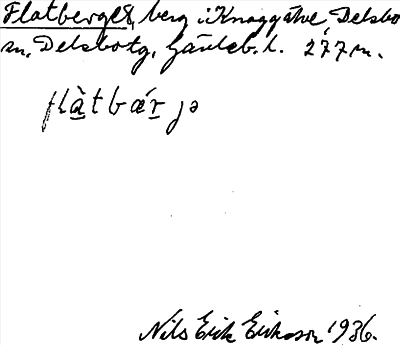 Flatberget, berg i Knaggälve, Delsbo
sn, Delsbotg, Gävleb. l. 277 m.
flàt bǽr jə
Nils Erik Eriksson 1936.